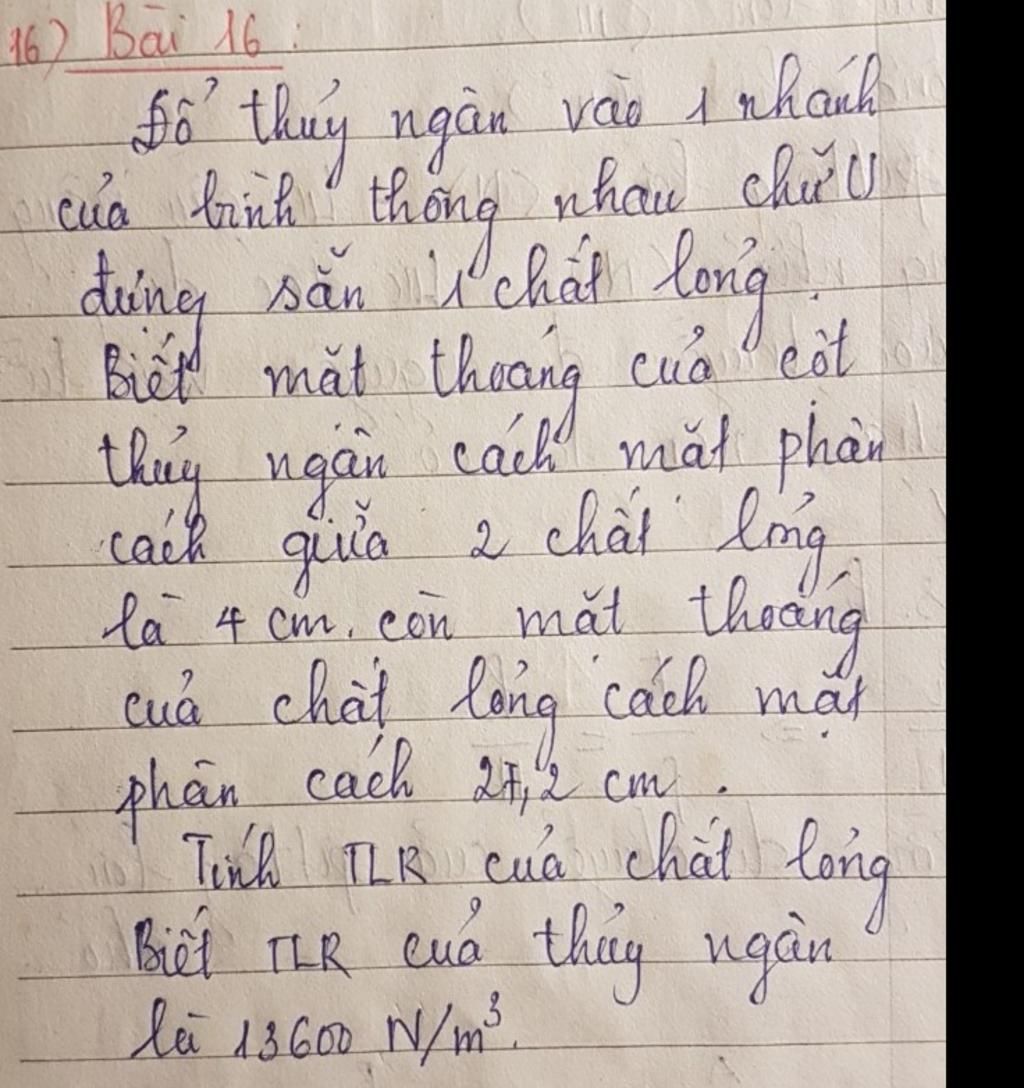 16) Bài 16 :
Đổ thủy ngân vào 1 nhánh
của bình thông nhau chữ U
đựng sẵn 1 chất lỏng.
Biết mặt thoáng của cột
thủy ngân cách mặt phân
cách giữa 2 chất lỏng
là 4 cm. còn mặt thoáng
của chất lỏng cách mặt
phân cách 27,2 cm .
Tính TLR của chất lỏng
Biết TLR của thủy ngân
là 13600 N/m³.